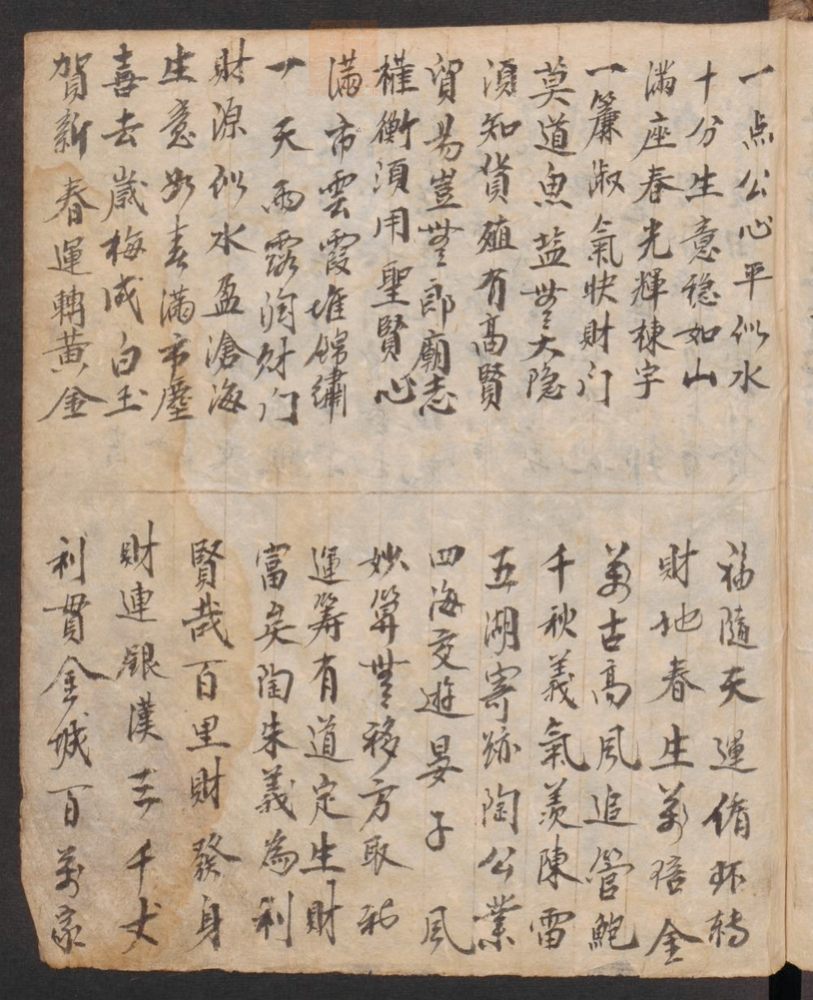 一点公心平似水
十分生意稳如山
滿座春光輝棟宇
一簾淑氣快財门
莫道魚盐無大隐
須知貨殖有高賢
貿易豈無郎廟志
權衡須用聖賢心
滿市雲霞堆錦繡
一天雨露潤财门
財源似水盈滄海
生意如春滿市廛
喜去歲梅成白玉
賀新春運轉黃金
福隨天運循环轉
財地春生萬倍金
萬古高风追管鮑
千秋義氣羨陳雷
五湖寄跡陶公業
四海交遊晏子风
妙筭無移方取利
運筹有道定生財
富矣陶朱義為利
賢哉百里財發身
財連銀漢三千丈
利貫金城百萬家